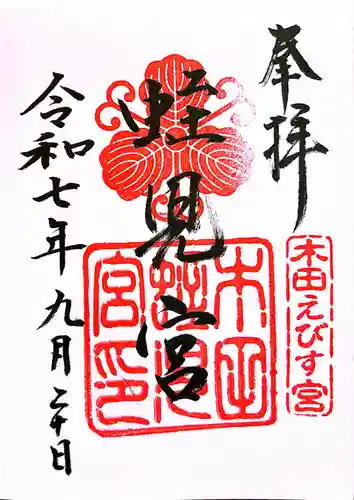 奉拝
木田えびす宮
蛭児宮
木田
蛭児
宮印
令和七年九月二十日